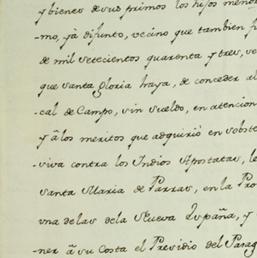 y bienes de sus primos los hijos menor
mo, yá difunto, vecino que tambien fu
de mil setecientos quarenta y tres, vo
que santa gloria haya, de conceder al
cal de Campo, sin sueldo, en atencion
y â los meritos que adquirió en sobste
viva contra los Indios Apostatas, le
Santa Maria de Parras, en la Pro
una de las de la Nueva España, y
ner â su Costa el Presidio del Parag